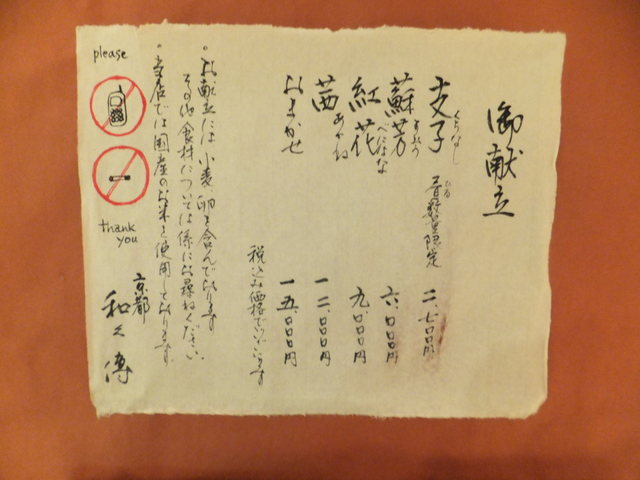 御献立
支子 くちなし 昼数量限定 ひる 二、七〇〇円
蘇芳 すおう 六、〇〇〇円
紅花 べにばな 九、〇〇〇円
茜 あかね 一二、〇〇〇円
おまかせ 一五、〇〇〇円
税込み価格でございます
・お献立には小麦、卵を含んでおります
その他食材については係にお尋ねください。
・当店では国産のお米を使用しております。
please
thank
you
京都
和久傳